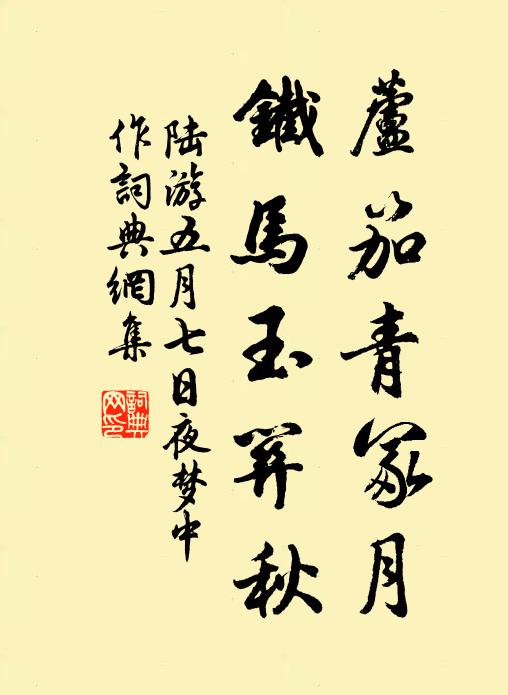 蘆笳青冢月
鐵馬玉關秋
陆游五月七日夜梦中
作詞典網集
詞典
网印